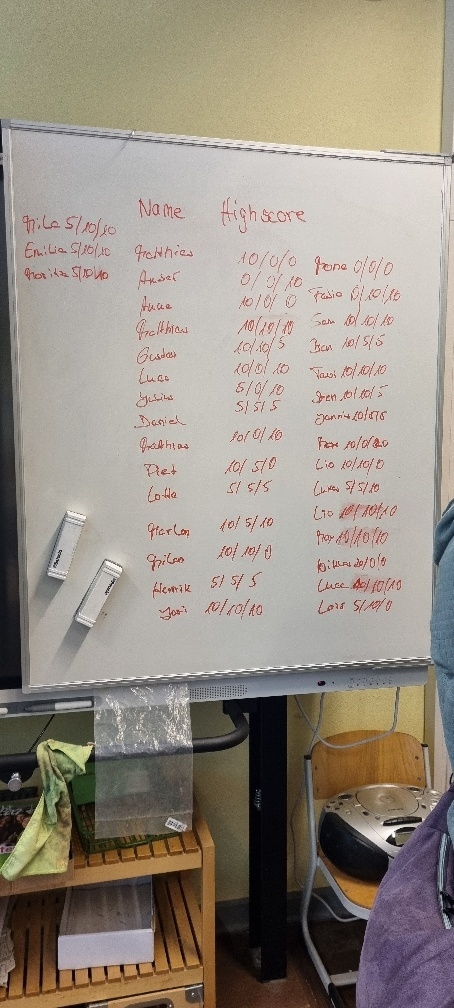 Name Highscore
Mila 5/10/10
Emilia 5/10/10
Moritz 5/10/10
Matthias 10/0/0
0/0/10
Anna 10/0/0
Matthias 10/10/10
Gustav 10/10/5
Luca 10/0/10
Julius 5/0/10
Daniel 5/5/5
Matthias 10/0/10
Piet 10/5/0
Lotta 5/5/5
Marlon 10/5/10
Milan 10/10/0
Henrik 5/5/5
Joris 10/10/10
0/0/0
0/10/10
Sam 10/10/10
Ben 10/5/5
10/10/10
Sven 10/10/5
Jannis
Lio 10/10/0
Lukas 5/5/10
Lio 10/10/10
Max 10/10/10
Luca 10/10/10
Lars 5/10/0